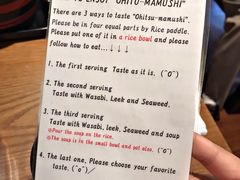 TO ENJOY "OHITU-MAMUSHI"
There are 3 ways to taste "Ohitsu-mamushi".
Please be in four equal parts by Rice paddle.
Please put one of it in a rice bowl and please
follow how to eat...↓↓↓
1. The first serving  Taste as it is. (^o^)
2. The second serving
Taste with Wasabi, Leek and Seaweed.
3. The third serving
Taste with Wasabi, Leek, Seaweed and soup
◎Pour the soup on the rice.
◎The soup is in the small bowl and pot also. (^o^)
4. The last one, Please choose your favorite
taste. (^o^)/